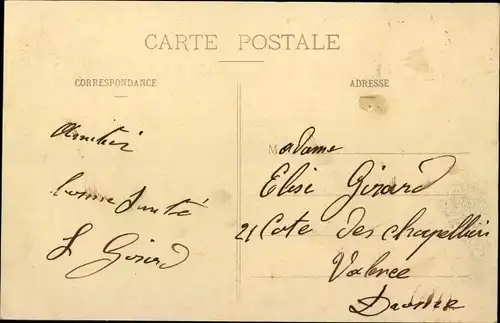 CARTE POSTALE
CORRESPONDANCE
ADRESSE
Amitiés
bonne santé
L Girard
Madame
Elise Girard
21 Cote des chapeliers
Valence
Drome